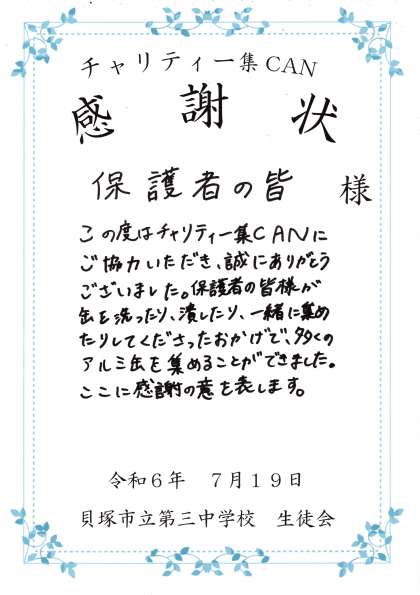 チャリティー集CAN
感謝状
保護者の皆 様
この度はチャリティー集CANに
ご協力いただき、誠にありがとう
ございました。保護者の皆様が
缶を洗ったり、潰したり、一緒に集め
たりしてくださったおかげで、多くの
アルミ缶を集めることができました。
ここに感謝の意を表します。
令和6年 7月19日
貝塚市立第三中学校 生徒会